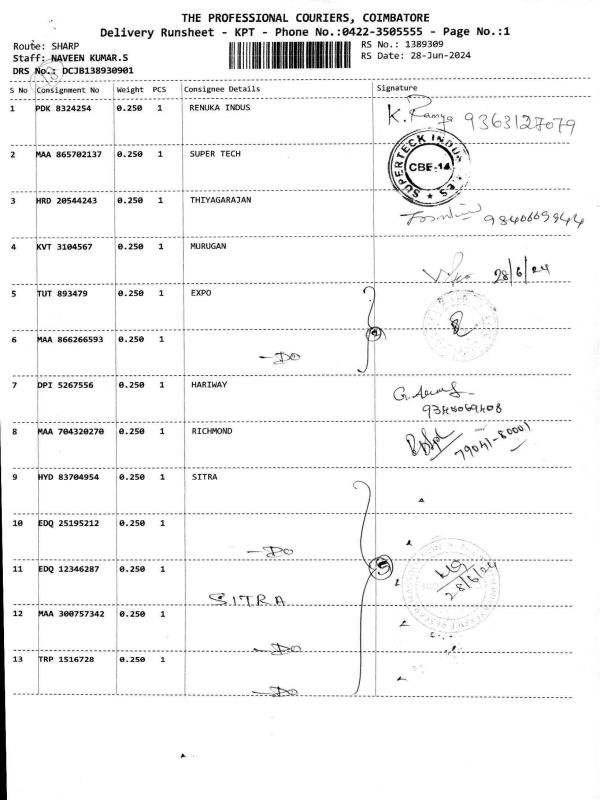 THE PROFESSIONAL COURIERS, COIMBATORE
Delivery Runsheet - KPT - Phone No.:0422-3505555 - Page No.:1
Route: SHARP RS No.: 1389309
Staff: NAVEEN KUMAR.S RS Date: 28-Jun-2024
DRS No.: DCJB138930901
S No Consignment No Weight PCS Consignee Details Signature
1 PDK 8324254 0.250 1 RENUKA INDUS K. Ramya 9363127079
2 MAA 865702137 0.250 1 SUPER TECH SUPERTECK INDUSTRIES CBE-14
3 HRD 20544243 0.250 1 THIYAGARAJAN 9840669944
4 KVT 3104567 0.250 1 MURUGAN 28/6/24
5 TUT 893479 0.250 1 EXPO
6 MAA 866266593 0.250 1 -DO 2
7 DPI 5267556 0.250 1 HARIWAY 9345069408
8 MAA 704320270 0.250 1 RICHMOND 79041-80001
9 HYD 83704954 0.250 1 SITRA
10 EDQ 25195212 0.250 1 -DO
11 EDQ 12346287 0.250 1 SITRA 5 28/6/24
12 MAA 300757342 0.250 1 -DO
13 TRP 1516728 0.250 1 -DO